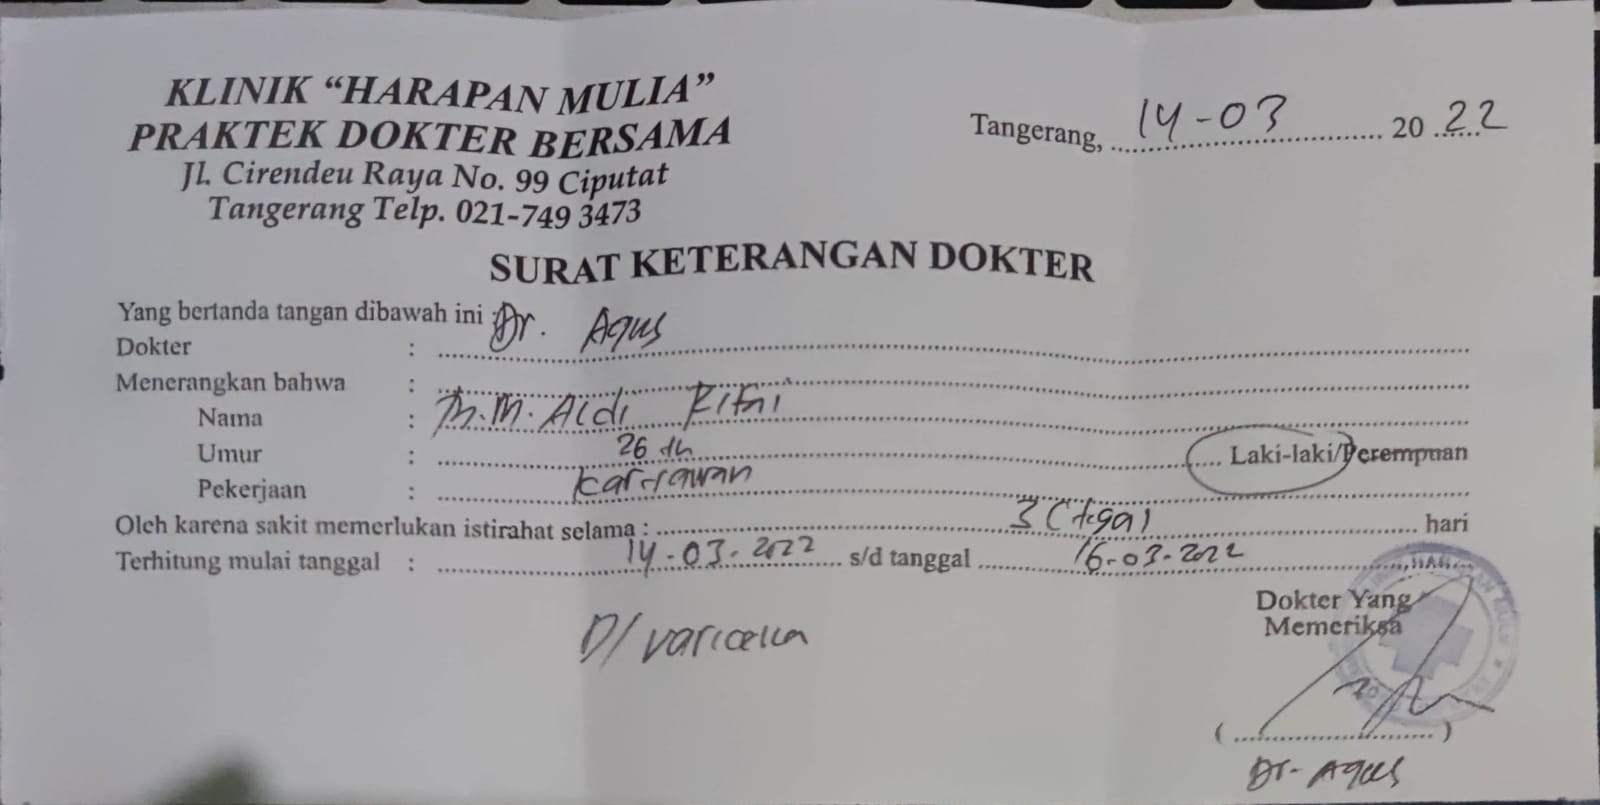 KLINIK “HARAPAN MULIA”
PRAKTEK DOKTER BERSAMA
Jl. Cirendeu Raya No. 99 Ciputat
Tangerang Telp. 021-749 3473
Tangerang, 14-03 2022
SURAT KETERANGAN DOKTER
Yang bertanda tangan dibawah ini :
Dokter : Dr. Agus
Menerangkan bahwa :
Nama : Tn. M. Aldi
Umur : 26 th Laki-laki/Perempuan
Pekerjaan : Karyawan
Oleh karena sakit memerlukan istirahat selama : 3 (tiga) hari
Terhitung mulai tanggal : 14-03-2022 s/d tanggal 16-03-2022
D/ varicella
Dokter Yang
Memeriksa
(....................)
Dr. Agus